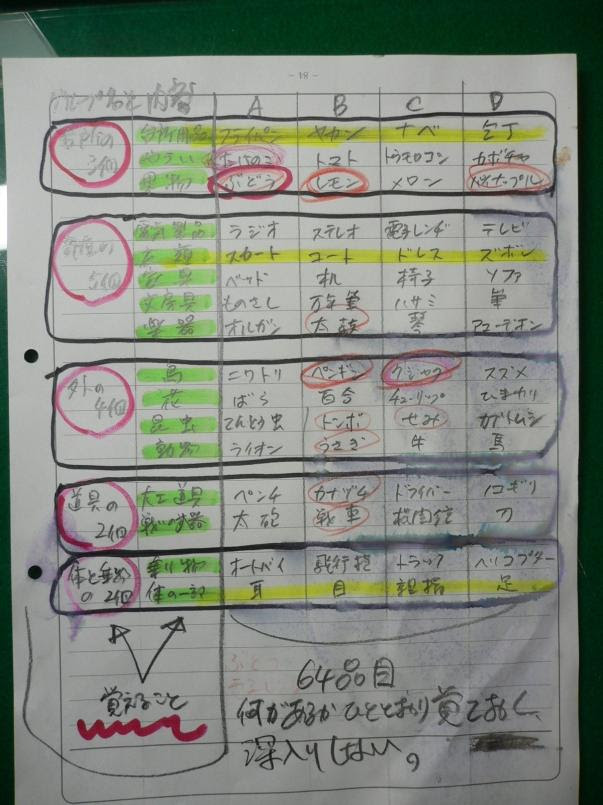 - 18 -
グループ名と 内容 A B C D
台所の 台所用品 フライパン ヤカン ナベ 包丁
3個 やさい たけのこ トマト トウモロコシ カボチャ
果物 ぶどう レモン メロン パイナップル
電気製品 ラジオ ステレオ 電子レンヂ テレビ
部屋の 衣類 スカート コート ドレス ズボン
5個 家具 ベッド 机 椅子 ソファ
文房具 ものさし 万年筆 ハサミ 筆
楽器 オルガン 太鼓 琴 アコーデオン
鳥 ニワトリ ペンギン クジャク スズメ
外の 花 ばら 百合 チューリップ ひまわり
4個 昆虫 てんとう虫 トンボ せみ カブトムシ
動物 ライオン うさぎ 牛 馬
道具の 大工道具 ペンチ カナヅチ ドライバー ノコギリ
2個 戦いの武器 大砲 戦車 機関銃 刀
体と乗物 乗り物 オートバイ 飛行機 トラック ヘリコプター
の2個 体の一部 耳 目 親指 足
覚えること
64品目
何があるかひととおり覚ておく、
深入りしない。